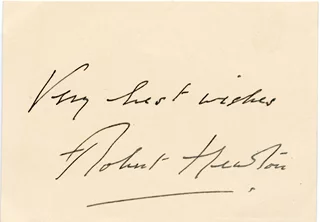 Very best wishes
Robert Newton